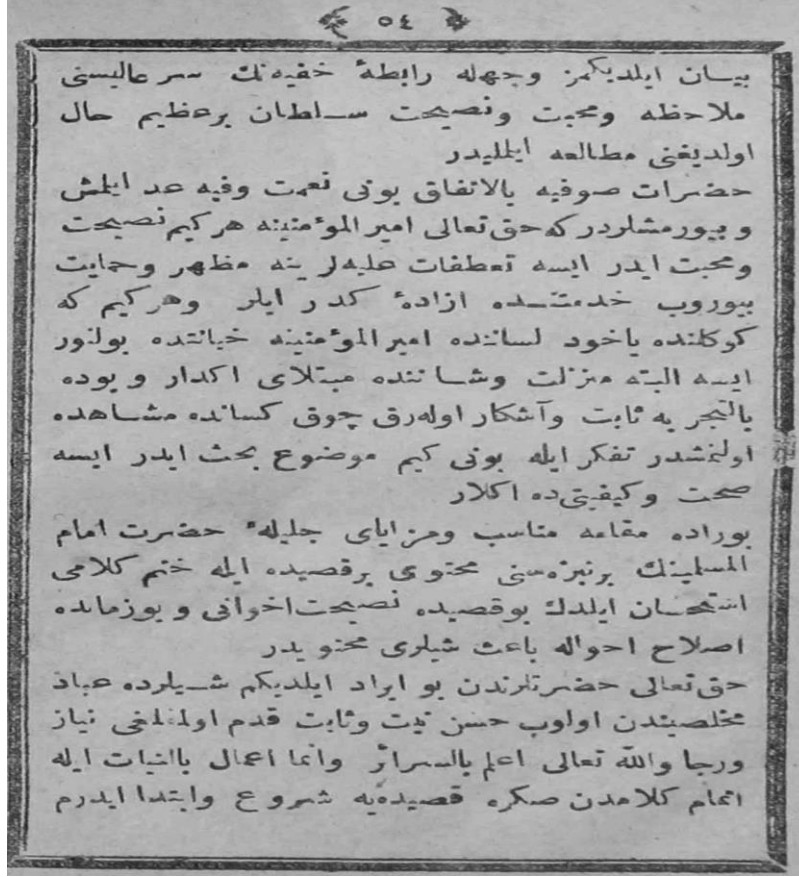 ٥٤
بیان ایلدیکمز وجهله رابطهٔ خفیه‌نك سر عالیسنی
ملاحظه ومحبت ونصیحت سلطان بر عظیم حال
اولدیغنی مطالعه ایلملیدر
حضرات صوفیه بالاتفاق بونی نعمت وفیه عد ایلمش
و بیورمشلردر که حق تعالی امیر المؤمنینه هر کیم نصیحت
ومحبت ایدر ایسه تعطفات علیه‌لرینه مظهر وحمایت
بیوروب خدمتنده ازادهٔ کدر ایلر وهر کیم که
کوکلنده یاخود لساننده امیر المؤمنینه خیانتده بولنور
ایسه البته منزلت وشاننده مبتلای اکدار و بوده
بالتجربه ثابت وآشکار اوله‌رق چوق کسانده مشاهده
اولنمشدر تفکر ایله بونی کیم موضوع بحث ایدر ایسه
صحت وکیفیتی ده اکلار
بوراده مقامه مناسب ومزایای جلیلهٔ حضرت امام
المسلمینك برنبزه‌سنی محتوی برقصیده ایله ختم کلامی
استحسان ایلدك بوقصیده نصیحت اخوانی و بوزمانده
اصلاح احواله باعث شیلری محتویدر
حق تعالی حضرتلرندن بو ایراد ایلدیکم شیلرده عباد
مخلصیندن اولوب حسن نیت وثابت قدم اولمقلغی نیاز
ورجا والله تعالی اعلم بالسرائر وانما اعمال بالنیات ایله
اتمام کلامدن صکره قصیده‌یه شروع وابتدا ایدرم